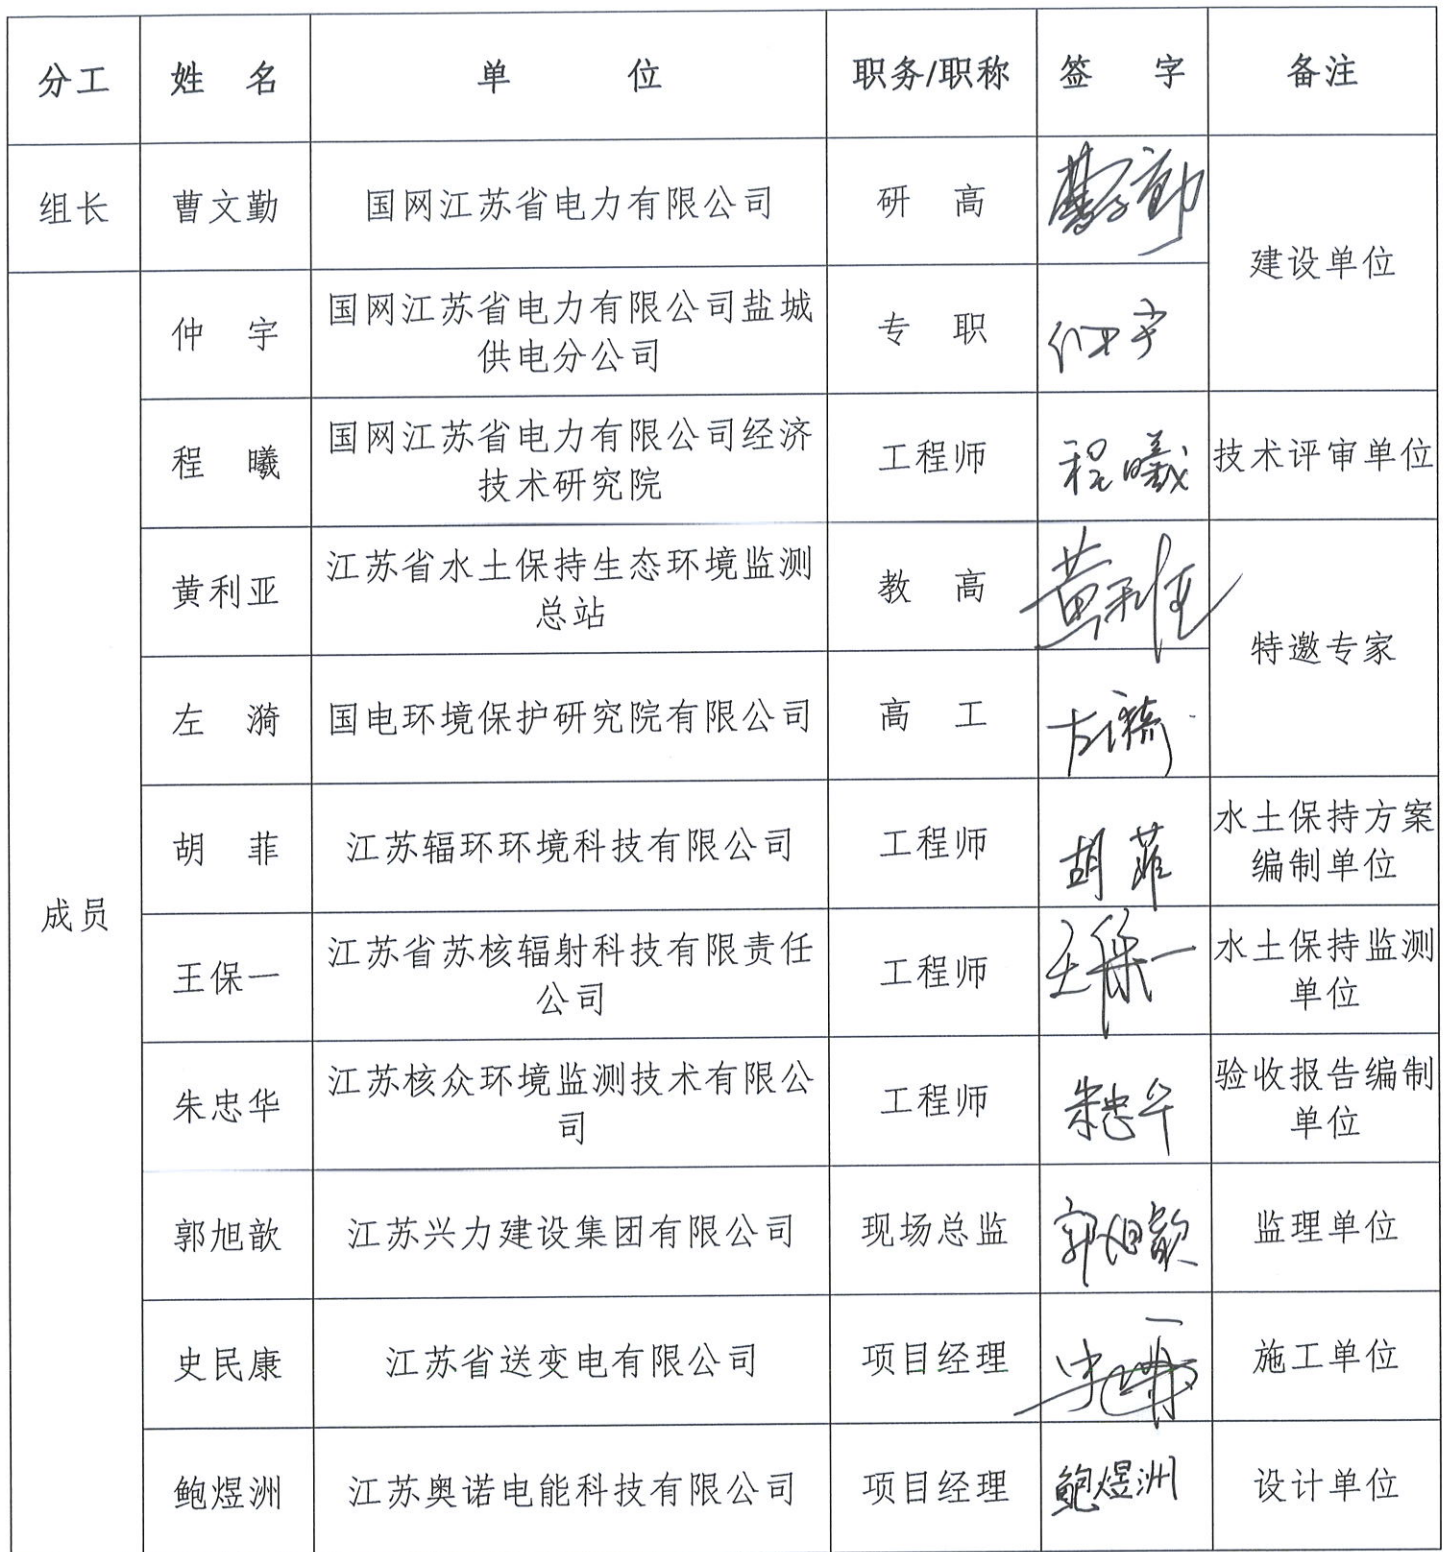 分工 姓 名 单 位 职务/职称 签 字 备注
组长 曹文勤 国网江苏省电力有限公司 研 高 曹文勤
建设单位
仲 宇 国网江苏省电力有限公司盐城 专 职 仲宇
供电分公司
程 曦 国网江苏省电力有限公司经济 工程师 程曦 技术评审单位
技术研究院
黄利亚 江苏省水土保持生态环境监测 教 高 黄利亚
总站
特邀专家
左 漪 国电环境保护研究院有限公司 高 工 左漪
胡 菲 江苏辐环环境科技有限公司 工程师 胡菲 水土保持方案
编制单位
成员
王保一 江苏省苏核辐射科技有限责任 工程师 王保一 水土保持监测
公司 单位
朱忠华 江苏核众环境监测技术有限公 工程师 朱忠华 验收报告编制
司 单位
郭旭歆 江苏兴力建设集团有限公司 现场总监 郭旭歆 监理单位
史民康 江苏省送变电有限公司 项目经理 施工单位
鲍煜洲 江苏奥诺电能科技有限公司 项目经理 鲍煜洲 设计单位